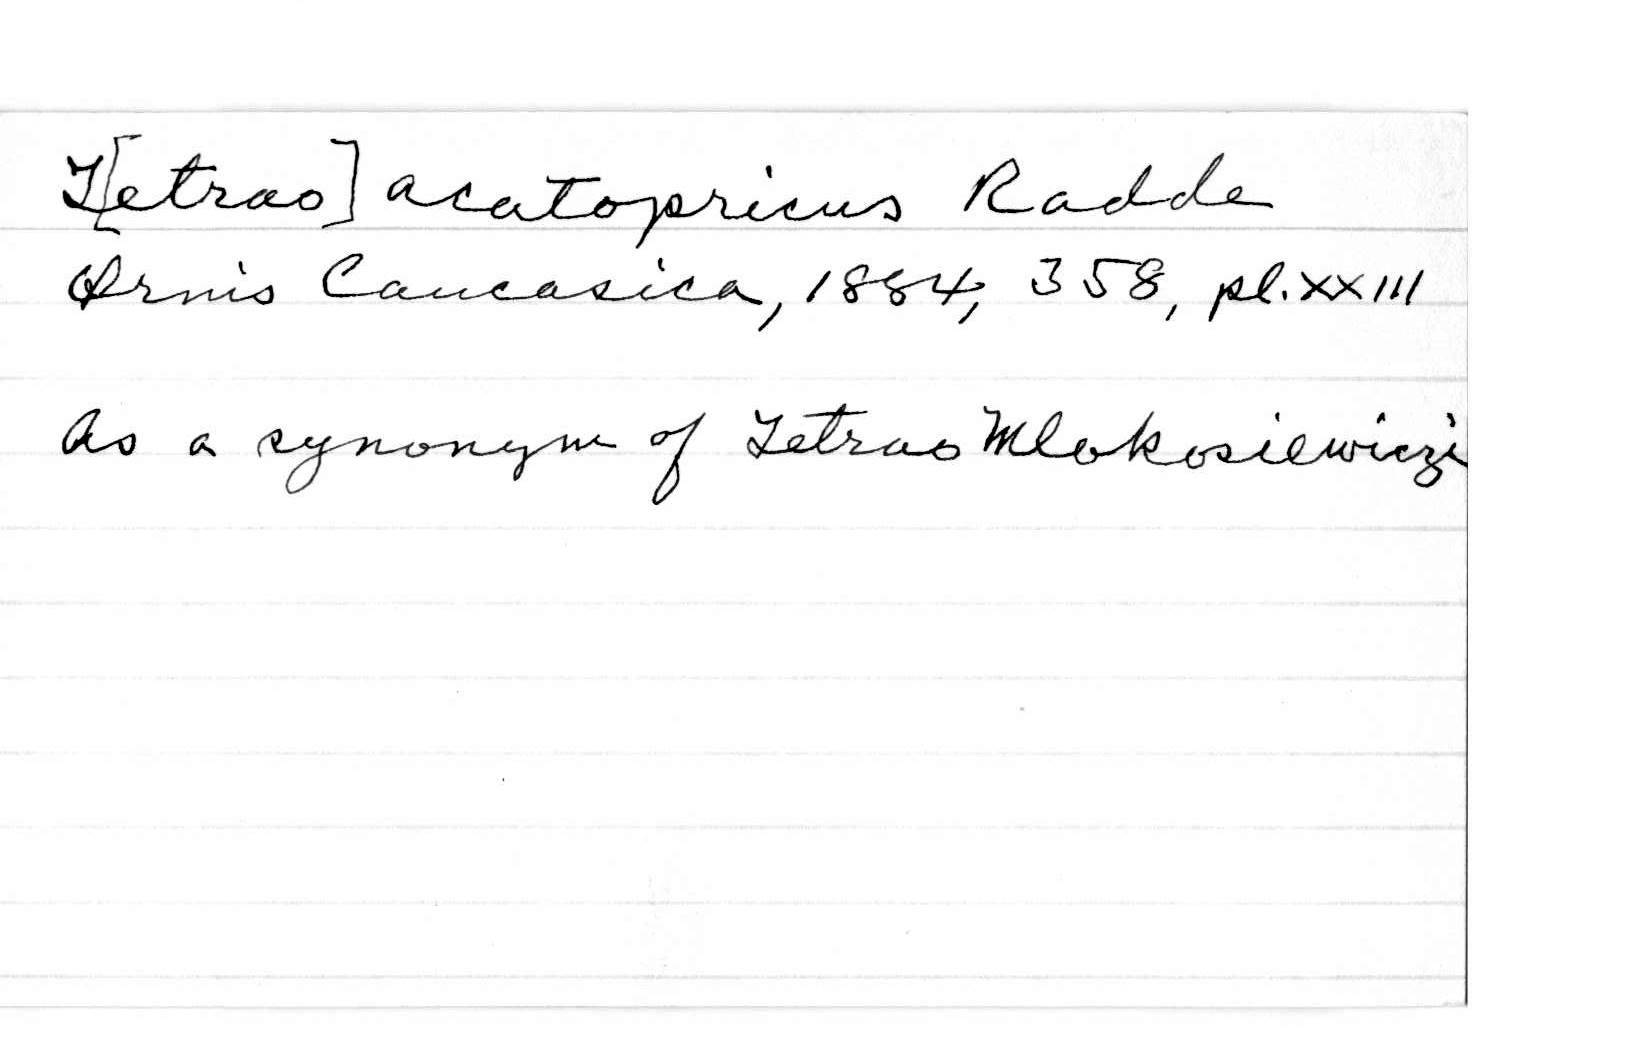 T[etrao] acatopricus Radde
Ornis Caucasica, 1884, 358, pl. XXIII
As a synonym of Tetrao Mlokosiewiczi